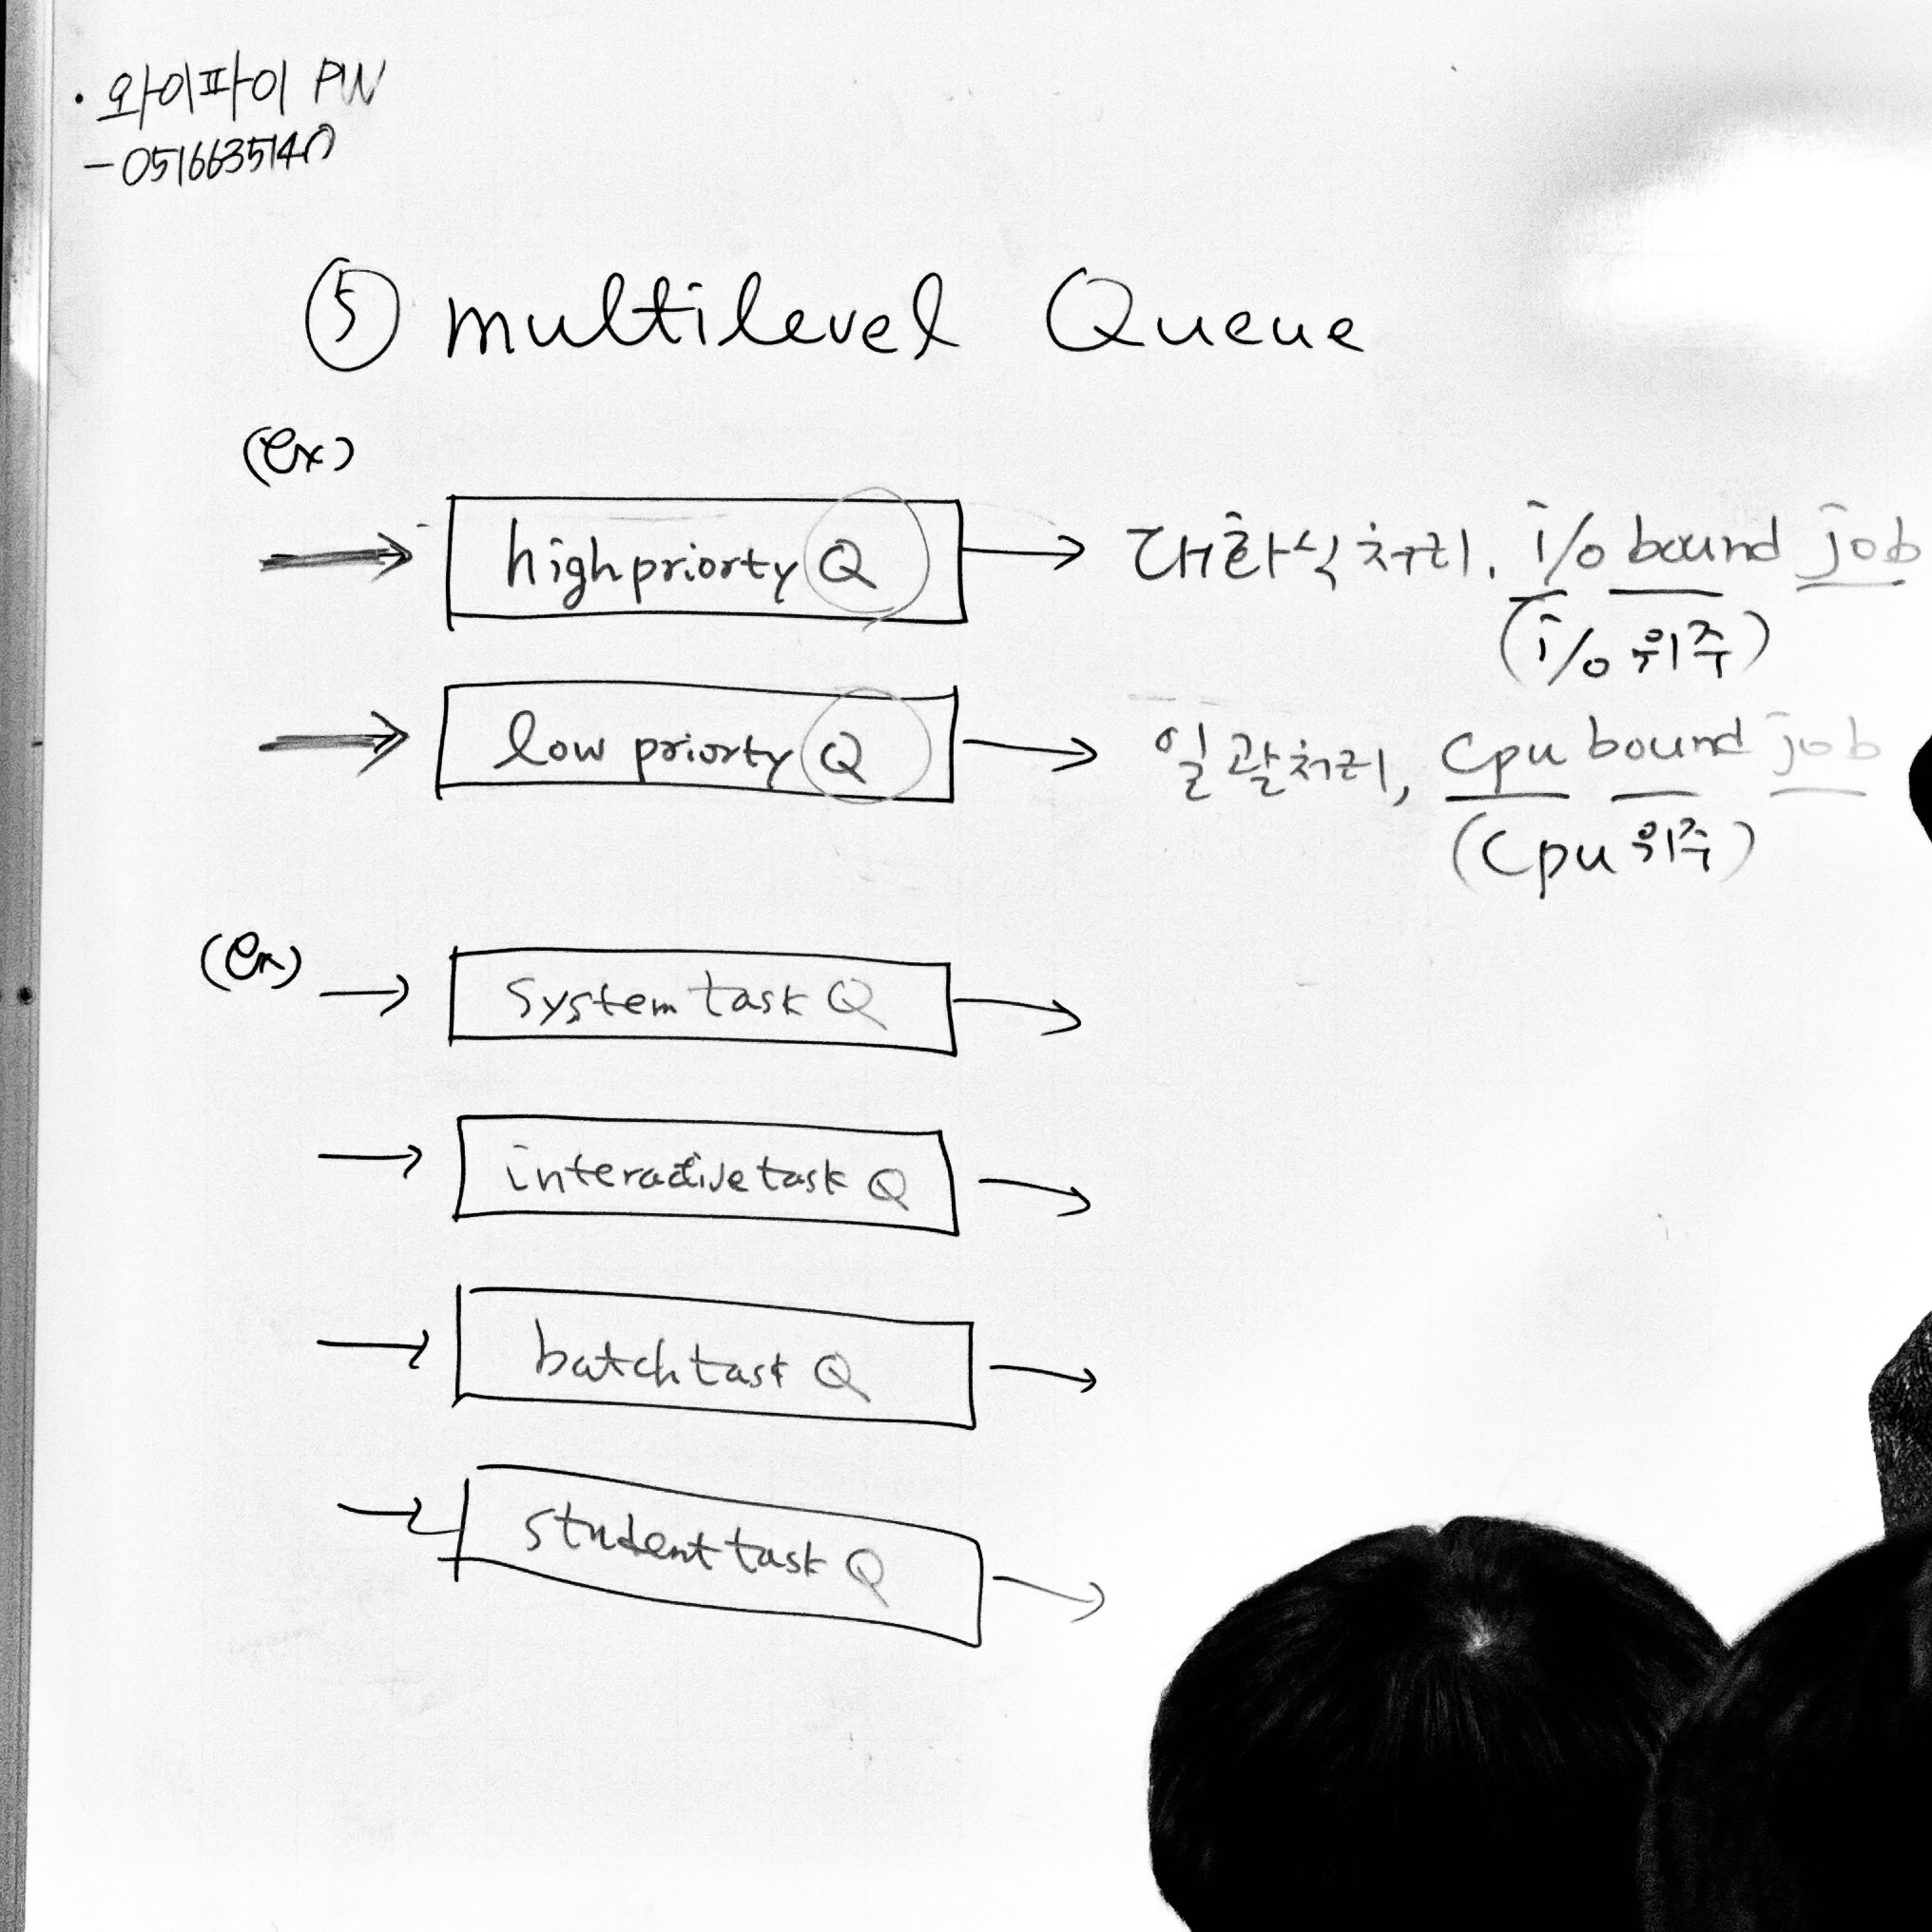 · 와이파이 PW
- 0516635140
⑤ multilevel Queue
(ex)
high priorty Q
대화식 처리. i/o bound job
(i/o 위주)
low priorty Q
일괄처리, Cpu bound job
(Cpu 위주)
(ex)
System task Q
interactive task Q
batch task Q
student task Q